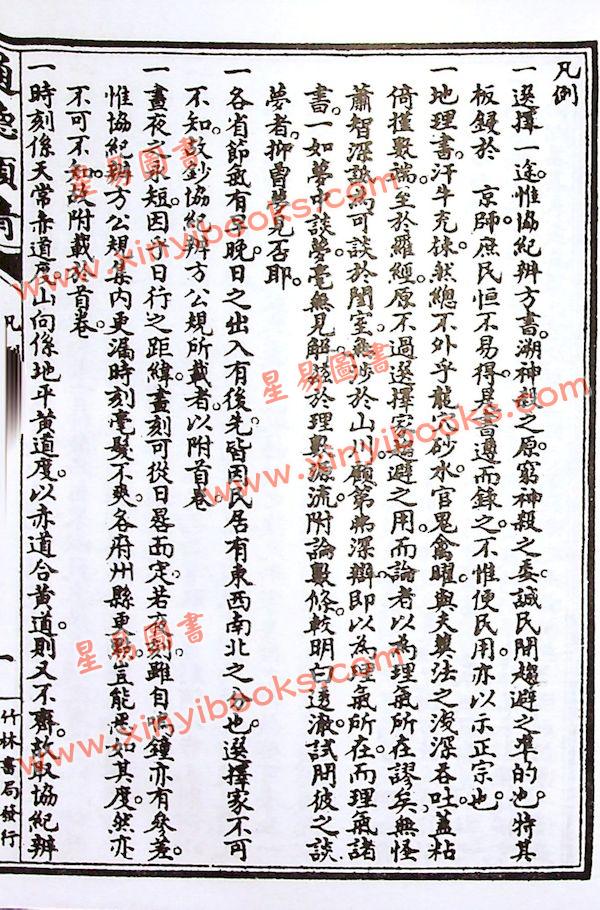 凡例
一選擇一途。惟協紀辨方書。溯神殺之原。窮神殺之委。誠民間趨避之準的也。特其
板鋟於 京師庶民恒不易得。是書遵而錄之。不惟便民用。亦以示正宗也。
一地理書。汗牛充棟。然總不外乎龍穴砂水官鬼禽曜。與夫葬法之淺深吞吐。蓋粘
倚撞數端。至於羅經。原不過選擇家趨避之用。而論者以為理氣所在。謬矣。無怪
蕭智深 為可談於闇室。無涉於山川。顧第無深辯。即以為理氣所在。而理氣諸
書。一如夢中談夢。毫無見解。茲於理數源流。附論數條。較明白透澈。試問彼之談
夢者。抑曾夢見否耶。
一各省節氣有早晚。日之出入有後先。皆因民居有東西南北之分也。選擇家不可
不知。敬鈔協紀辨方公規所載者。以附首卷。
一晝夜永短。因乎日行之距緯。晝刻可從日晷而定。若夜刻雖自鳴鐘亦有參差。
惟協紀辨方公規集內更漏時刻。毫髮不爽。各府州縣更點。豈能悉如其度。然亦
不可不知。故附載於首卷。
一時刻係天常赤道度。山向係地平黃道度。以赤道合黃道。則又不齊。故取協紀辨
通德類情
凡例
一
竹林書局發行
星易圖書
www.xinyibooks.com
星易圖書
www.xinyibooks.com
星易圖書
www.xinyibooks.com